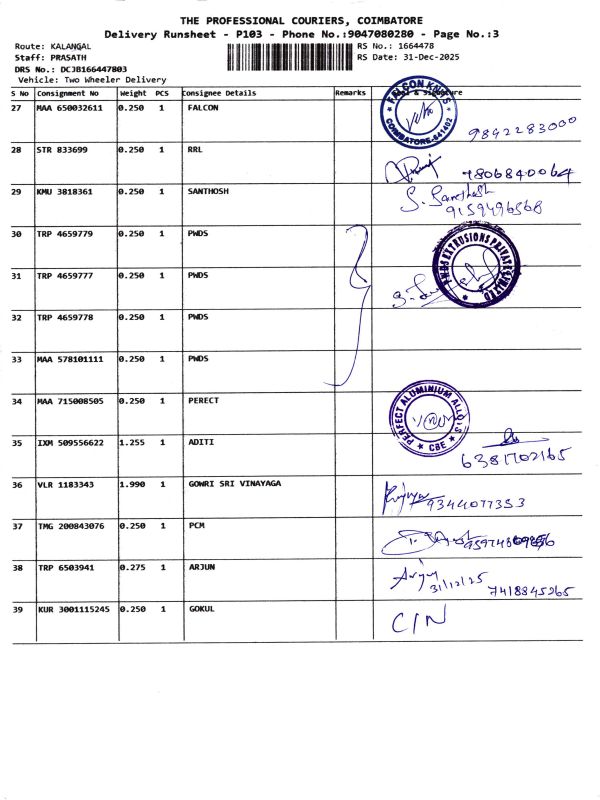 THE PROFESSIONAL COURIERS, COIMBATORE
Delivery Runsheet - P103 - Phone No.:9047080280 - Page No.:3
Route: KALANGAL RS No.: 1664478
Staff: PRASATH RS Date: 31-Dec-2025
DRS No.: DCJB166447803
Vehicle: Two Wheeler Delivery
S No Consignment No Weight PCS Consignee Details Remarks
27 MAA 650032611 0.250 1 FALCON
FALCON KNITS COIMBATORE-641402
9842283000
28 STR 833699 0.250 1 RRL
9806840064
29 KMU 3818361 0.250 1 SANTHOSH
S. Santhosh
9159496568
30 TRP 4659779 0.250 1 PWDS
31 TRP 4659777 0.250 1 PWDS
PWDS EXTRUSIONS PRIVATE LIMITED
32 TRP 4659778 0.250 1 PWDS
33 MAA 578101111 0.250 1 PWDS
34 MAA 715008505 0.250 1 PERECT
PERFECT ALUMINIUM ALLOYS CBE
35 IXM 509556622 1.255 1 ADITI
6381702165
36 VLR 1183343 1.990 1 GOWRI SRI VINAYAGA
9344077353
37 TMG 200843076 0.250 1 PCM
38 TRP 6503941 0.275 1 ARJUN
Arjun
31/12/25
7418845265
39 KUR 3001115245 0.250 1 GOKUL
C/N